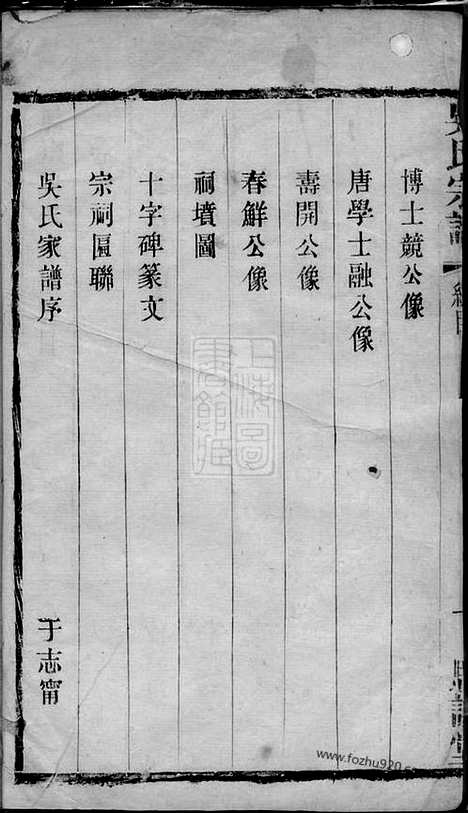 博士競公像
唐學士融公像
壽開公像
春鮮公像
祠墳圖
十字碑篆文
宗祠匾聯
吳氏家譜序 于志甯
吳氏宗譜
上海圖書館藏
www.fozhu920.com